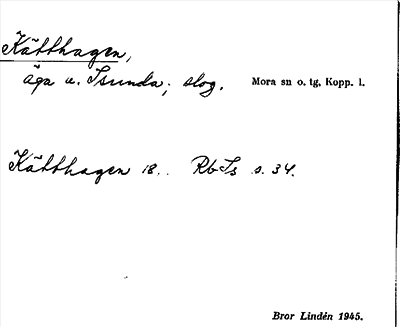 Kätthagen,
äga u. Isunda; slog. Mora sn o. tg, Kopp. l.
Kätthagen 18.. RbIs s. 34.
Bror Lindén 1945.